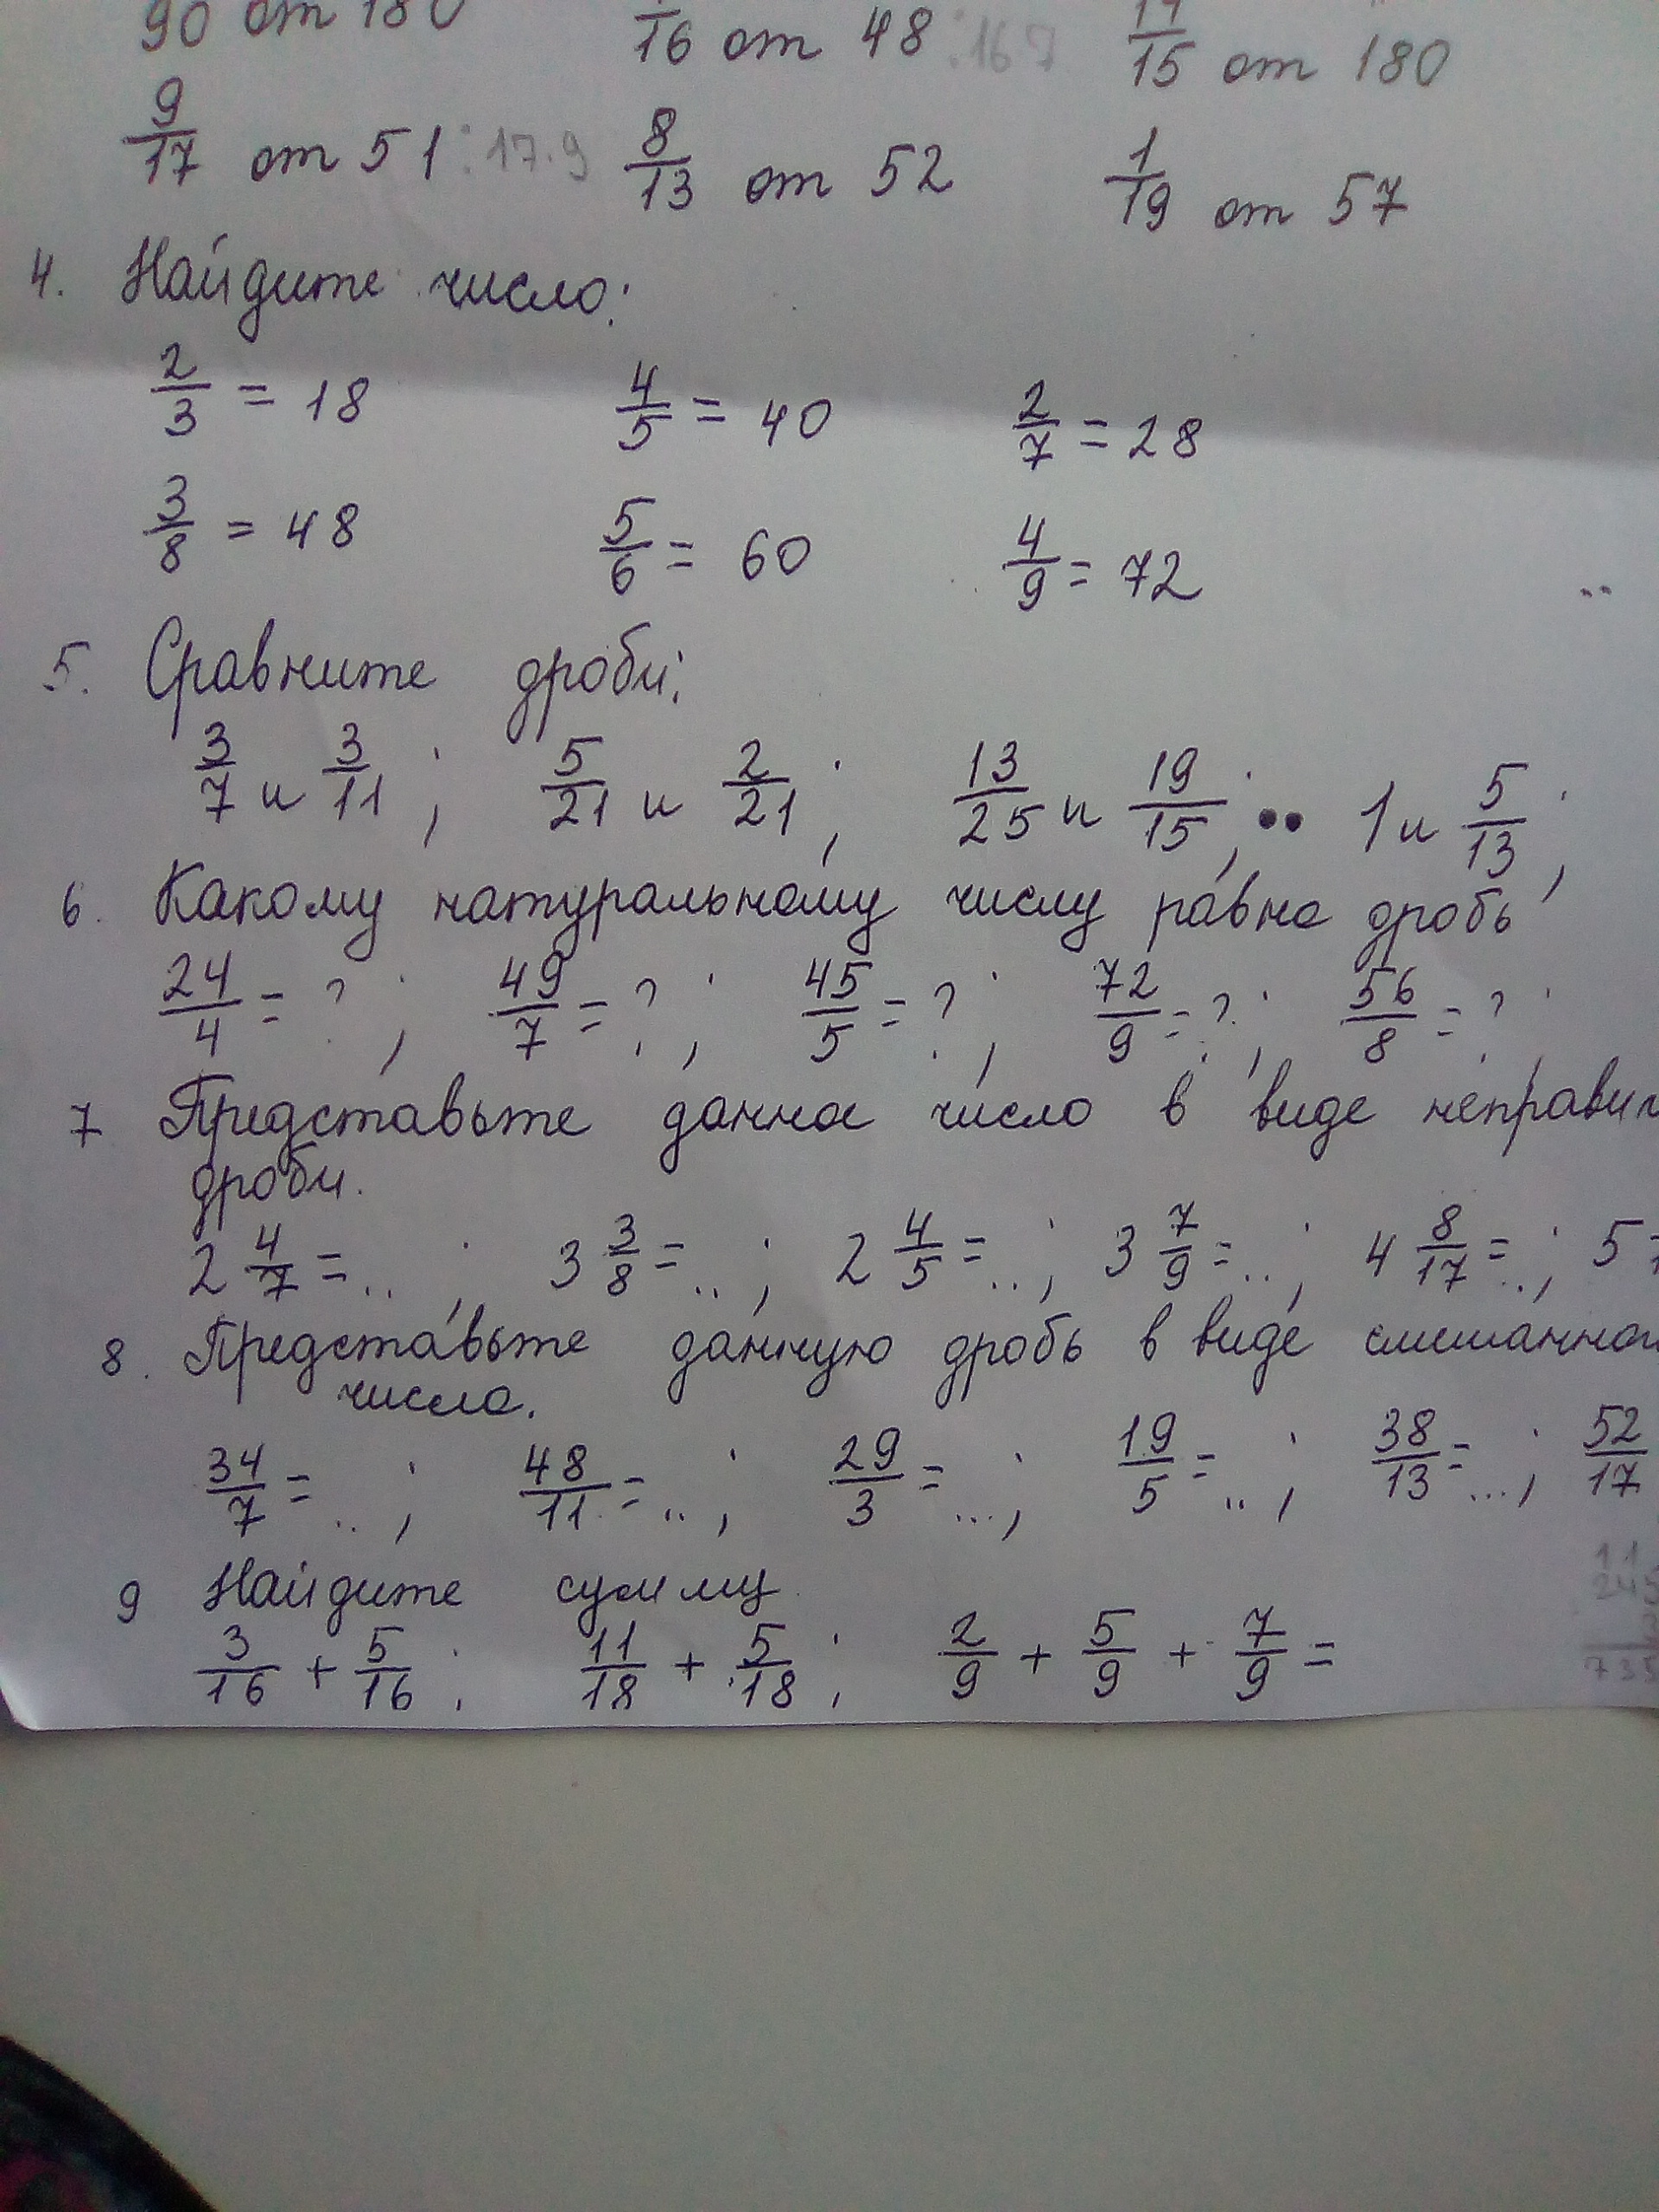 90 от 180 /16 от 48 :16 7 /15 от 180
9/17 от 51 :17·9 8/13 от 52 1/19 от 57
4. Найдите число:
2/3 = 18 4/5 = 40 2/7 = 28
3/8 = 48 5/6 = 60 4/9 = 72
5. Сравните дроби:
3/7 и 3/11 ; 5/21 и 2/21 ; 13/25 и 19/15 ; 1 и 5/13 ;
6. Какому натуральному числу равна дробь
24/4 = ? ; 49/7 = ? ; 45/5 = ? ; 72/9 = ? ; 56/8 = ? ;
7 Представьте данное число в виде неправил
дроби.
2 4/7 = .. ; 3 3/8 = .. ; 2 4/5 = .. ; 3 7/9 = .. ; 4 8/17 = .. ; 5
8. Представьте данную дробь в виде смешанног
числа.
34/7 = .. ; 48/11 = .. ; 29/3 = ... ; 19/5 = .. ; 38/13 = ... ; 52/17
9 Найдите сумму
3/16 + 5/16 ; 11/18 + 5/18 ; 2/9 + 5/9 + 7/9 =
11
245
735